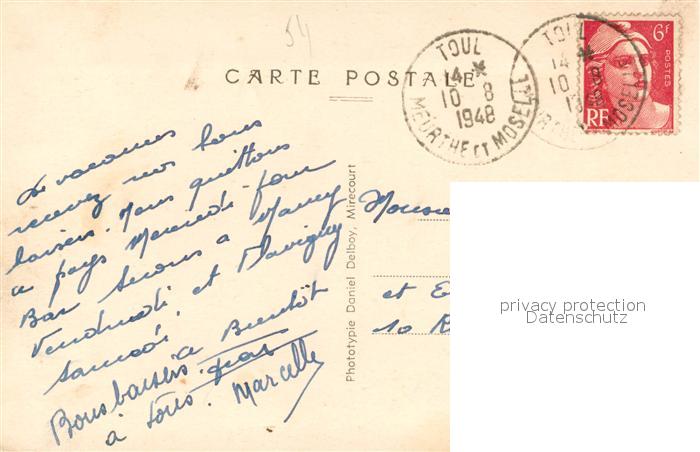 54
CARTE POSTALE
TOUL
14 *
10 - 8
1948
MEURTHE ET MOSELLE
TOUL
14 *
10 8
6F
POSTES
RF
De vacances
recevez nos bons
baisers. Nous quittons
a pays Mercredi - pour
Bar Serons a Nancy
Vendredi, et Flavigny
samedi,
a Bientôt
Bons baisers
à tous. Marcelle
Phototypie Daniel Delboy, Mirecourt
Monsie
et E
10 R
privacy protection
Datenschutz